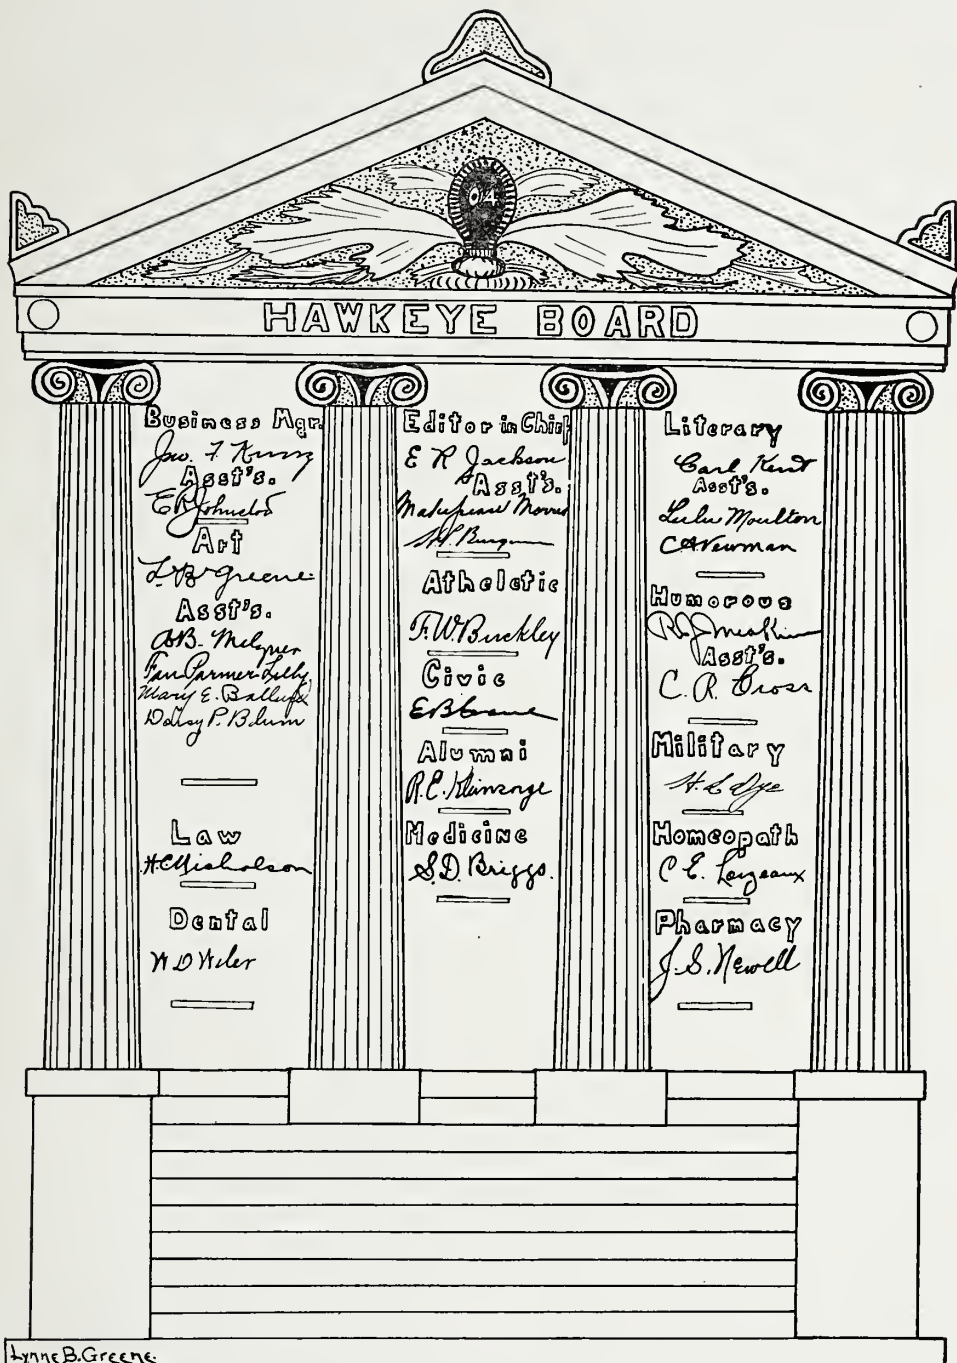 04
HAWKEYE BOARD
Business Mgr.
Jno. F.
Asst's.
E R Johnston
Art
L B Greene
Asst's.
A.B.
Fan Parmer Lilly
Mary E.
Daisy P. Blum
Law
H.C. Nicholson
Dental
W D Weler
Editor in Chief
E R Jackson
Asst's.
Makepeace Morris
Atheletic
F.W. Buckley
Civic
E B
Alumni
R.E. Kleinsorge
Medicine
S.D. Briggs.
Literary
Carl Kent
Asst's.
Lulu Moulton
C A Newman
Humorous
Asst's.
C. R. Cross
Military
H. L. Dye
Homeopath
C E. Loizeaux
Pharmacy
J. S. Newell
Lynne B. Greene.